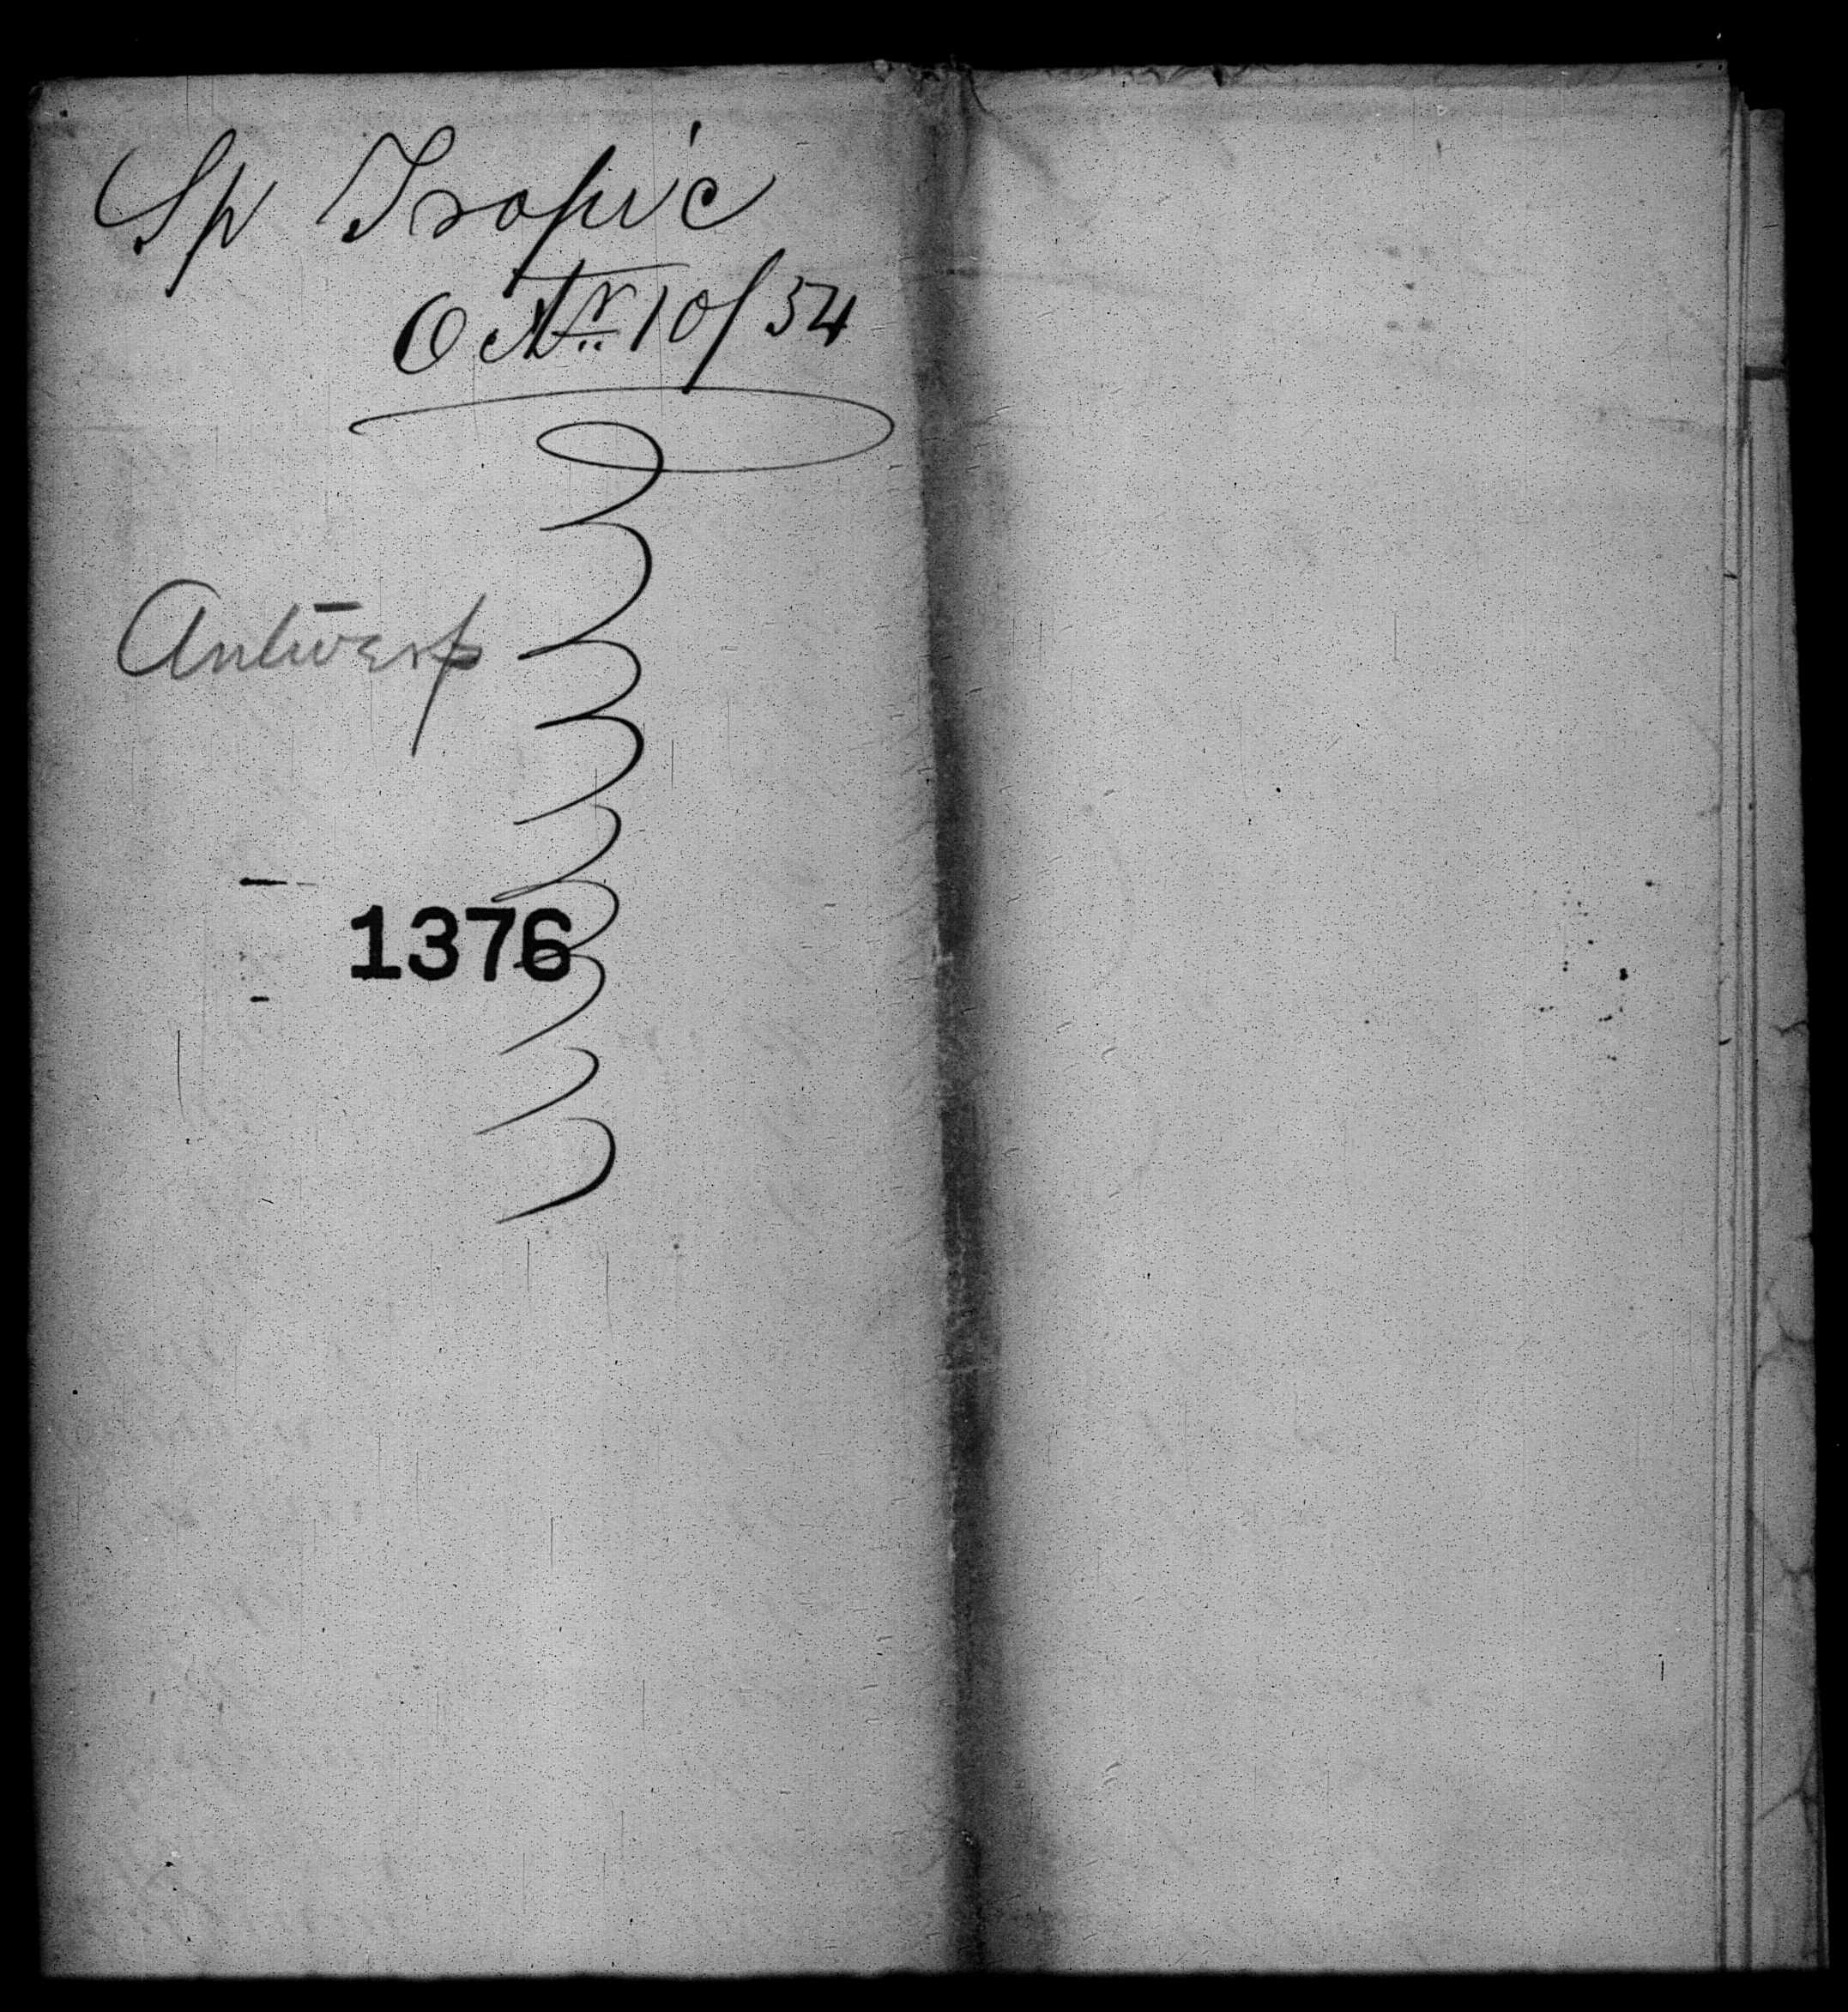 Sp Tropic
Octr 10/54
Antwerp
1376